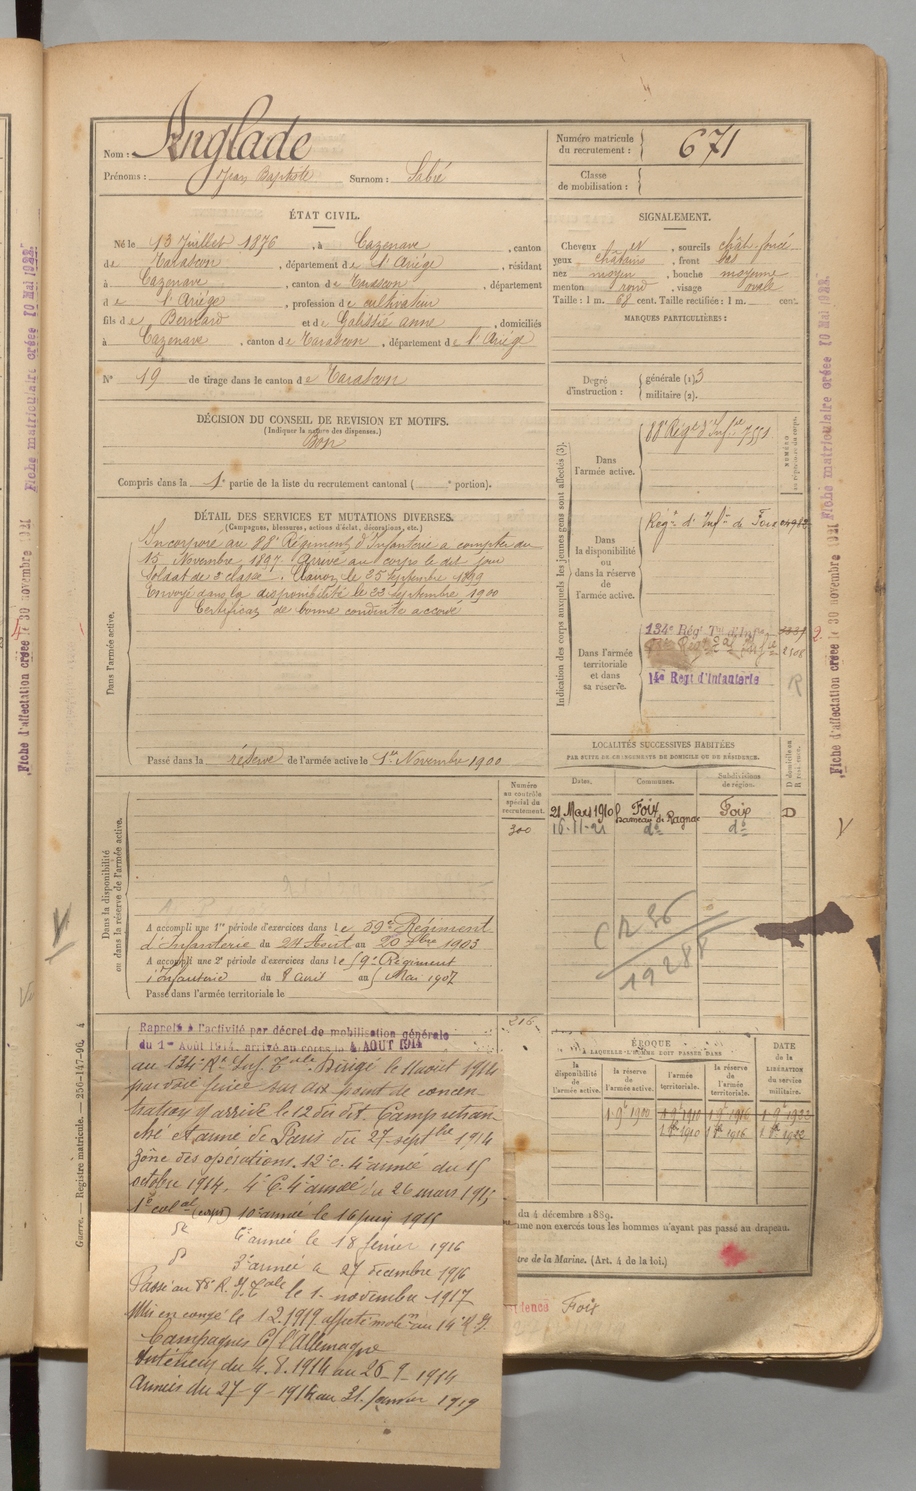 Nom : Anglade
Prénoms : Jean Baptiste Surnom :
Numéro matricule du recrutement : 671
Classe de mobilisation :
ÉTAT CIVIL.
Né le 13 Juillet 1876, à Cazenave, canton
de Tarascon, département de l'Ariége, résidant
à Cazenave, canton de Tarascon, département
de l'Ariége, profession de cultivateur
fils de Bernard et de anne, domiciliés
à Cazenave, canton de Tarascon, département de l'Ariége
N° 19 de tirage dans le canton de Tarascon
SIGNALEMENT.
Cheveux, sourcils chât-foncé
yeux châtains, front bas
nez moyen, bouche moyenne
menton rond, visage ovale
Taille : 1 m. 68 cent. Taille rectifiée : 1 m. cent.
MARQUES PARTICULIÈRES :
Degré d'instruction : générale (1). 3
militaire (2).
DÉCISION DU CONSEIL DE REVISION ET MOTIFS.
(Indiquer la nature des dispenses.)
Bon
Compris dans la 1e partie de la liste du recrutement cantonal ( e portion).
DÉTAIL DES SERVICES ET MUTATIONS DIVERSES.
(Campagnes, blessures, actions d'éclat, décorations, etc.)
Dans l'armée active.
Incorporé au 88e Régiment d'Infanterie a compter du
15 Novembre 1897. Arrivé au corps le dit jour
Soldat de 2 classe. le 25 Septembre 1899
Envoyé dans la disponibilité le 22 Septembre 1900
Certificat de bonne conduite accordé
Passé dans la réserve de l'armée active le 1er Novembre 1900
Indication des corps auxquels les jeunes gens sont affectés (3).
NUMÉRO au répertoire du corps.
Dans l'armée active.
88e Régt d'Infie 7551
Dans la disponibilité ou dans la réserve de l'armée active.
Régt d'Infie de Foix
Dans l'armée territoriale et dans sa réserve.
134e Régt Tal d'Infie
14e Regt d'Infanterie
R
LOCALITÉS SUCCESSIVES HABITÉES
PAR SUITE DE CHANGEMENTS DE DOMICILE OU DE RÉSIDENCE.
Dates. Communes. Subdivisions de région. D domicile ou R résidence.
21 Mars 1910 Foix Foix D
16-11-21 do do
CR 36
19288
Dans la disponibilité ou dans la réserve de l'armée active.
Numéro au contrôle spécial du recrutement.
300
A accompli une 1re période d'exercices dans le 59e Régiment
d'Infanterie du 24 Aout au 20 7bre 1903
A accompli une 2e période d'exercices dans le 59e Régiment
d'Infanterie du 8 avril au Mai 1907
Passé dans l'armée territoriale le
216
Rappelé à l'activité par décret de mobilisation générale
du 1er Août 1914. arrivé au corps le 4 AOUT 1914
au 134e Rt Inf. Tale Dirigé le 11 aout 1914
par voie ferrée sur dix point de concen-
tration y arrivé le 12 du dit Camp retran-
ché et armé de Paris du 27 septbre 1914
Zône des operations. 12e c. 4e armée du 15
octobre 1914. 4e C. 4e armée du 26 mars 1915
1er cal al (corps) 10e armée le 16 juin 1915
do 6e armée le 18 fevrier 1916
do 3e armée a 27 decembre 1916
Passé au R. I. Tale le 1er novembre 1917
Mis en congé le 1.2.1919 affecté mole au 14e R.I.
Campagnes C/ l'Allemagne
Intérieur du 4.8.1914 au 26-9-1914
Armées du 27-9-1914 au 31 Janvier 1919
ÉPOQUE
À LAQUELLE L'HOMME DOIT PASSER DANS
la disponibilité de l'armée active. la réserve de l'armée active. l'armée territoriale. la réserve de l'armée territoriale.
DATE de la LIBÉRATION du service militaire.
1 9e 1900 1 9e 1910 1 9e 1916 1 9e 1922
1 8e 1910 1 8e 1916 1 8e 1922
du 4 décembre 1889.
me non exercés tous les hommes n'ayant pas passé au drapeau.
tre de la Marine. (Art. 4 de la loi.)
idence Foix
Guerre. — Registre matricule. — 256-147-96. 4
Fiche d'affectation créée le 30 novembre 1921
Fiche matriculaire créée 10 Mai 1922.
Fiche d'affectation créée le 30 novembre 1921
Fiche matriculaire créée 10 Mai 1922.